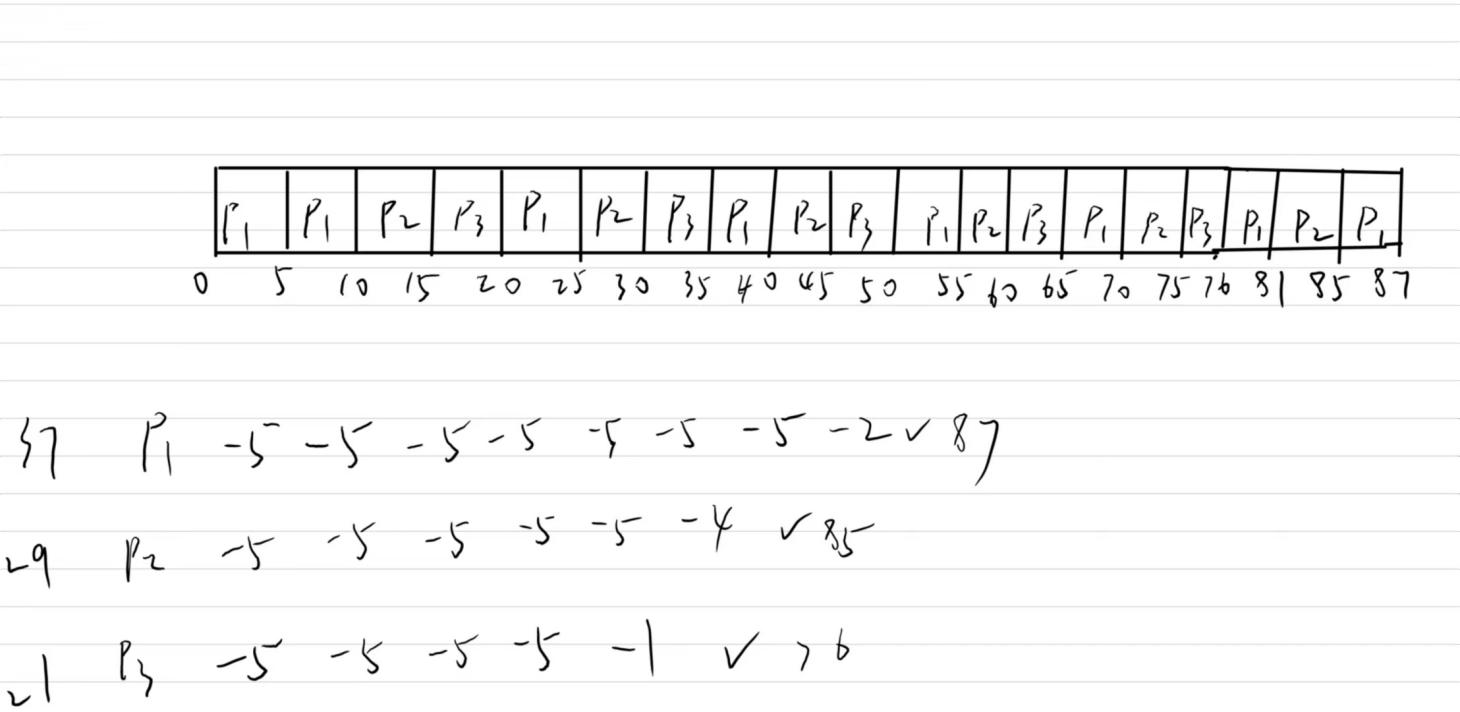 P1 P1 P2 P3 P1 P2 P3 P1 P2 P3 P1 P2 P3 P1 P2 P3 P1 P2 P1
0 5 10 15 20 25 30 35 40 45 50 55 60 65 70 75 76 81 85 87
37 P1 -5 -5 -5 -5 -5 -5 -5 -2 ✓ 87
29 P2 -5 -5 -5 -5 -5 -4 ✓ 85
21 P3 -5 -5 -5 -5 -1 ✓ 76